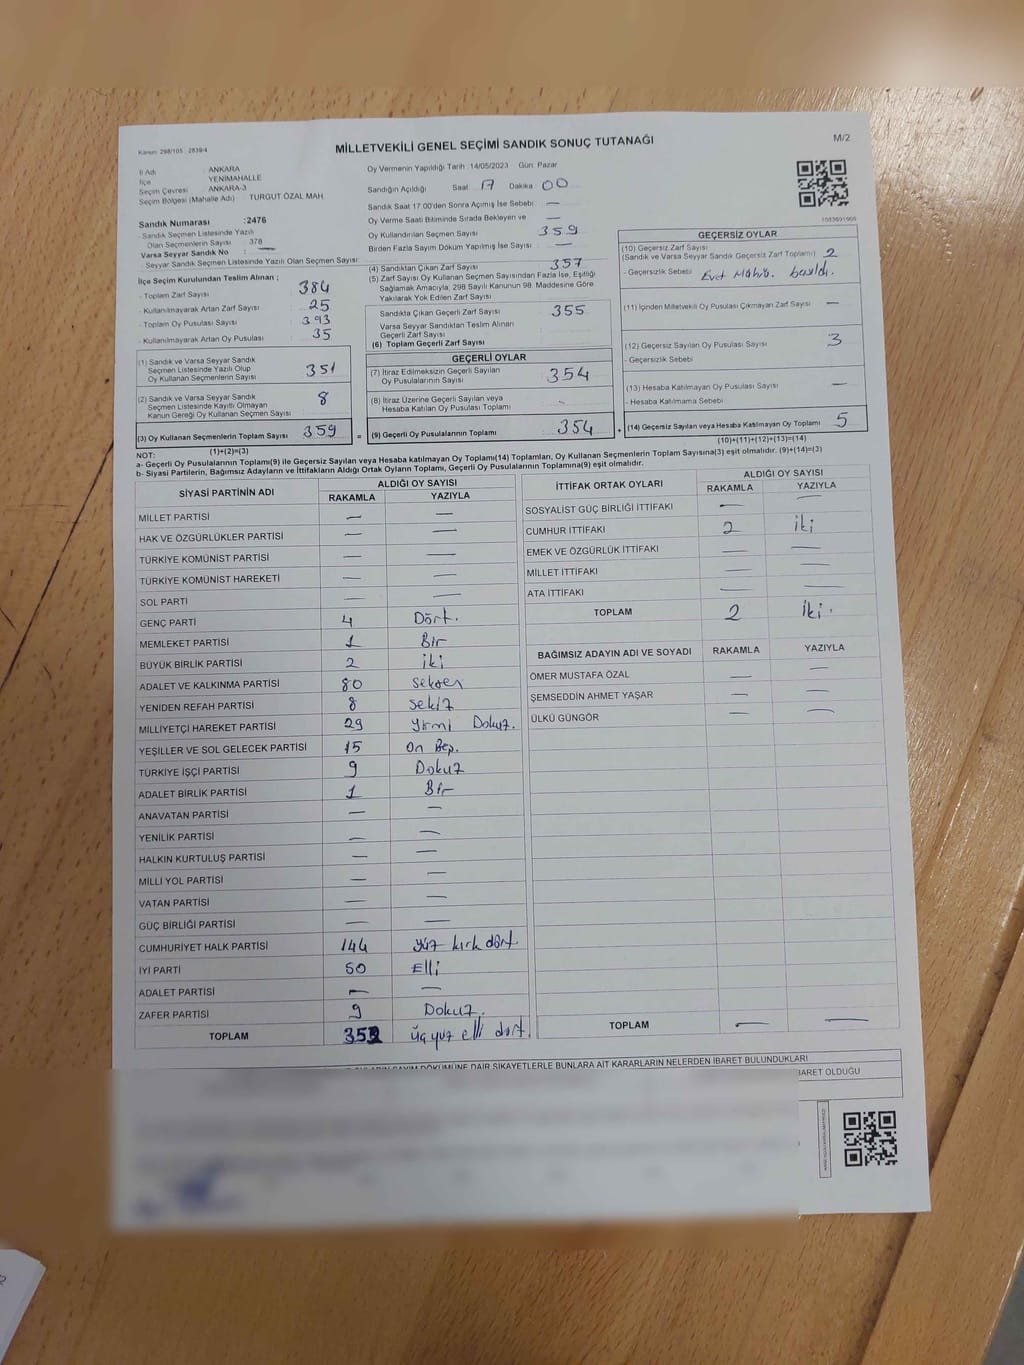 Kanun: 298/105 2839/4
MİLLETVEKİLİ GENEL SEÇİMİ SANDIK SONUÇ TUTANAĞI
M/2
İl Adı : ANKARA
İlçe : YENİMAHALLE
Seçim Çevresi : ANKARA-3
Seçim Bölgesi (Mahalle Adı) : TURGUT ÖZAL MAH
Sandık Numarası :2476
- Sandık Seçmen Listesinde Yazılı
Olan Seçmenlerin Sayısı : 378
Varsa Seyyar Sandık No : —
- Seyyar Sandık Listesinde Yazılı Olan Seçmen Sayısı:
İlçe Seçim Kurulundan Teslim Alınan ;
- Toplam Zarf Sayısı : 384
- Kullanılmayarak Artan Zarf Sayısı : 25
- Toplam Oy Pusulası Sayısı : 393
- Kullanılmayarak Artan Oy Pusulası : 35
(1) Sandık ve Varsa Seyyar Sandık
Seçmen Listesinde Yazılı Olup
Oy Kullanan Seçmenlerin Sayısı : 351
(2) Sandık ve Varsa Seyyar Sandık
Seçmen Listesinde Kayıtlı Olmayan
Kanun Gereği Oy Kullanan Seçmen Sayısı : 8
(3) Oy Kullanan Seçmenlerin Toplam Sayısı : 359
(1)+(2)=(3)
Oy Vermenin Yapıldığı Tarih :14/05/2023 Gün: Pazar
Sandığın Açıldığı Saat 17 Dakika 00
Sandık Saat 17.00'den Sonra Açımış İse Sebebi: —
Oy Verme Saati Bitiminde Sırada Bekleyen ve —
Oy Kullandırılan Seçmen Sayısı : 359
Birden Fazla Sayım Döküm Yapılmış İse Sayısı : —
(4) Sandıktan Çıkan Zarf Sayısı : 357
(5) Zarf Sayısı Oy Kullanan Seçmen Sayısından Fazla İse, Eşitliği
Sağlamak Amacıyla, 298 Sayılı Kanunun 98. Maddesine Göre
Yakılarak Yok Edilen Zarf Sayısı :
Sandıkta Çıkan Geçerli Zarf Sayısı : 355
Varsa Seyyar Sandıktan Teslim Alınan
Geçerli Zarf Sayısı
(6) Toplam Geçerli Zarf Sayısı :
GEÇERLİ OYLAR
(7) İtiraz Edilmeksizin Geçerli Sayılan
Oy Pusulalarının Sayısı : 354
(8) İtiraz Üzerine Geçerli Sayılan veya
Hesaba Katılan Oy Pusulası Toplamı :
= (9) Geçerli Oy Pusulalarının Toplamı : 354
GEÇERSİZ OYLAR
(10) Geçersiz Zarf Sayısı
(Sandık ve Varsa Seyyar Sandık Geçersiz Zarf Toplamı) : 2
- Geçersizlik Sebebi : Evet Mührü. basıldı.
(11) İçinden Milletvekili Oy Pusulası Çıkmayan Zarf Sayısı : —
(12) Geçersiz Sayılan Oy Pusulası Sayısı : 3
- Geçersizlik Sebebi :
(13) Hesaba Katılmayan Oy Pusulası Sayısı : —
- Hesaba Katılmama Sebebi :
+ (14) Geçersiz Sayılan veya Hesaba Katılmayan Oy Toplamı : 5
(10)+(11)+(12)+(13)=(14)
NOT:
a- Geçerli Oy Pusulalarının Toplamı(9) ile Geçersiz Sayılan veya Hesaba Katılmayan Oy Toplamı(14) Toplamları, Oy Kullanan Seçmenlerin Toplam Sayısına(3) eşit olmalıdır. (9)+(14)=(3)
b- Siyasi Partilerin, Bağımsız Adayların ve İttifakların Aldığı Ortak Oyların Toplamı, Geçerli Oy Pusulalarının Toplamına(9) eşit olmalıdır.
SİYASİ PARTİNİN ADI ALDIĞI OY SAYISI
RAKAMLA YAZIYLA
MİLLET PARTİSİ — —
HAK VE ÖZGÜRLÜKLER PARTİSİ — —
TÜRKİYE KOMÜNİST PARTİSİ — —
TÜRKİYE KOMÜNİST HAREKETİ — —
SOL PARTİ — —
GENÇ PARTİ 4 Dört.
MEMLEKET PARTİSİ 1 Bir
BÜYÜK BİRLİK PARTİSİ 2 iki
ADALET VE KALKINMA PARTİSİ 80 seksen
YENİDEN REFAH PARTİSİ 8 sekiz
MİLLİYETÇİ HAREKET PARTİSİ 29 yirmi Dokuz.
YEŞİLLER VE SOL GELECEK PARTİSİ 15 On Beş.
TÜRKİYE İŞÇİ PARTİSİ 9 Dokuz
ADALET BİRLİK PARTİSİ 1 Bir
ANAVATAN PARTİSİ — —
YENİLİK PARTİSİ — —
HALKIN KURTULUŞ PARTİSİ — —
MİLLİ YOL PARTİSİ — —
VATAN PARTİSİ — —
GÜÇ BİRLİĞİ PARTİSİ — —
CUMHURİYET HALK PARTİSİ 144 yüz kırk dört.
İYİ PARTİ 50 Elli
ADALET PARTİSİ — —
ZAFER PARTİSİ 9 Dokuz.
TOPLAM 352 üç yuz elli dört.
İTTİFAK ORTAK OYLARI ALDIĞI OY SAYISI
RAKAMLA YAZIYLA
SOSYALİST GÜÇ BİRLİĞİ İTTİFAKI — —
CUMHUR İTTİFAKI 2 iki
EMEK VE ÖZGÜRLÜK İTTİFAKI — —
MİLLET İTTİFAKI — —
ATA İTTİFAKI — —
TOPLAM 2 iki.
BAĞIMSIZ ADAYIN ADI VE SOYADI RAKAMLA YAZIYLA
ÖMER MUSTAFA ÖZAL — —
ŞEMSEDDİN AHMET YAŞAR — —
ÜLKÜ GÜNGÖR — —
TOPLAM — —
SAYIM DÖKÜMÜNE DAİR ŞİKAYETLERLE BUNLARA AİT KARARLARIN NELERDEN İBARET BULUNDUKLARI
İBARET OLDUĞU